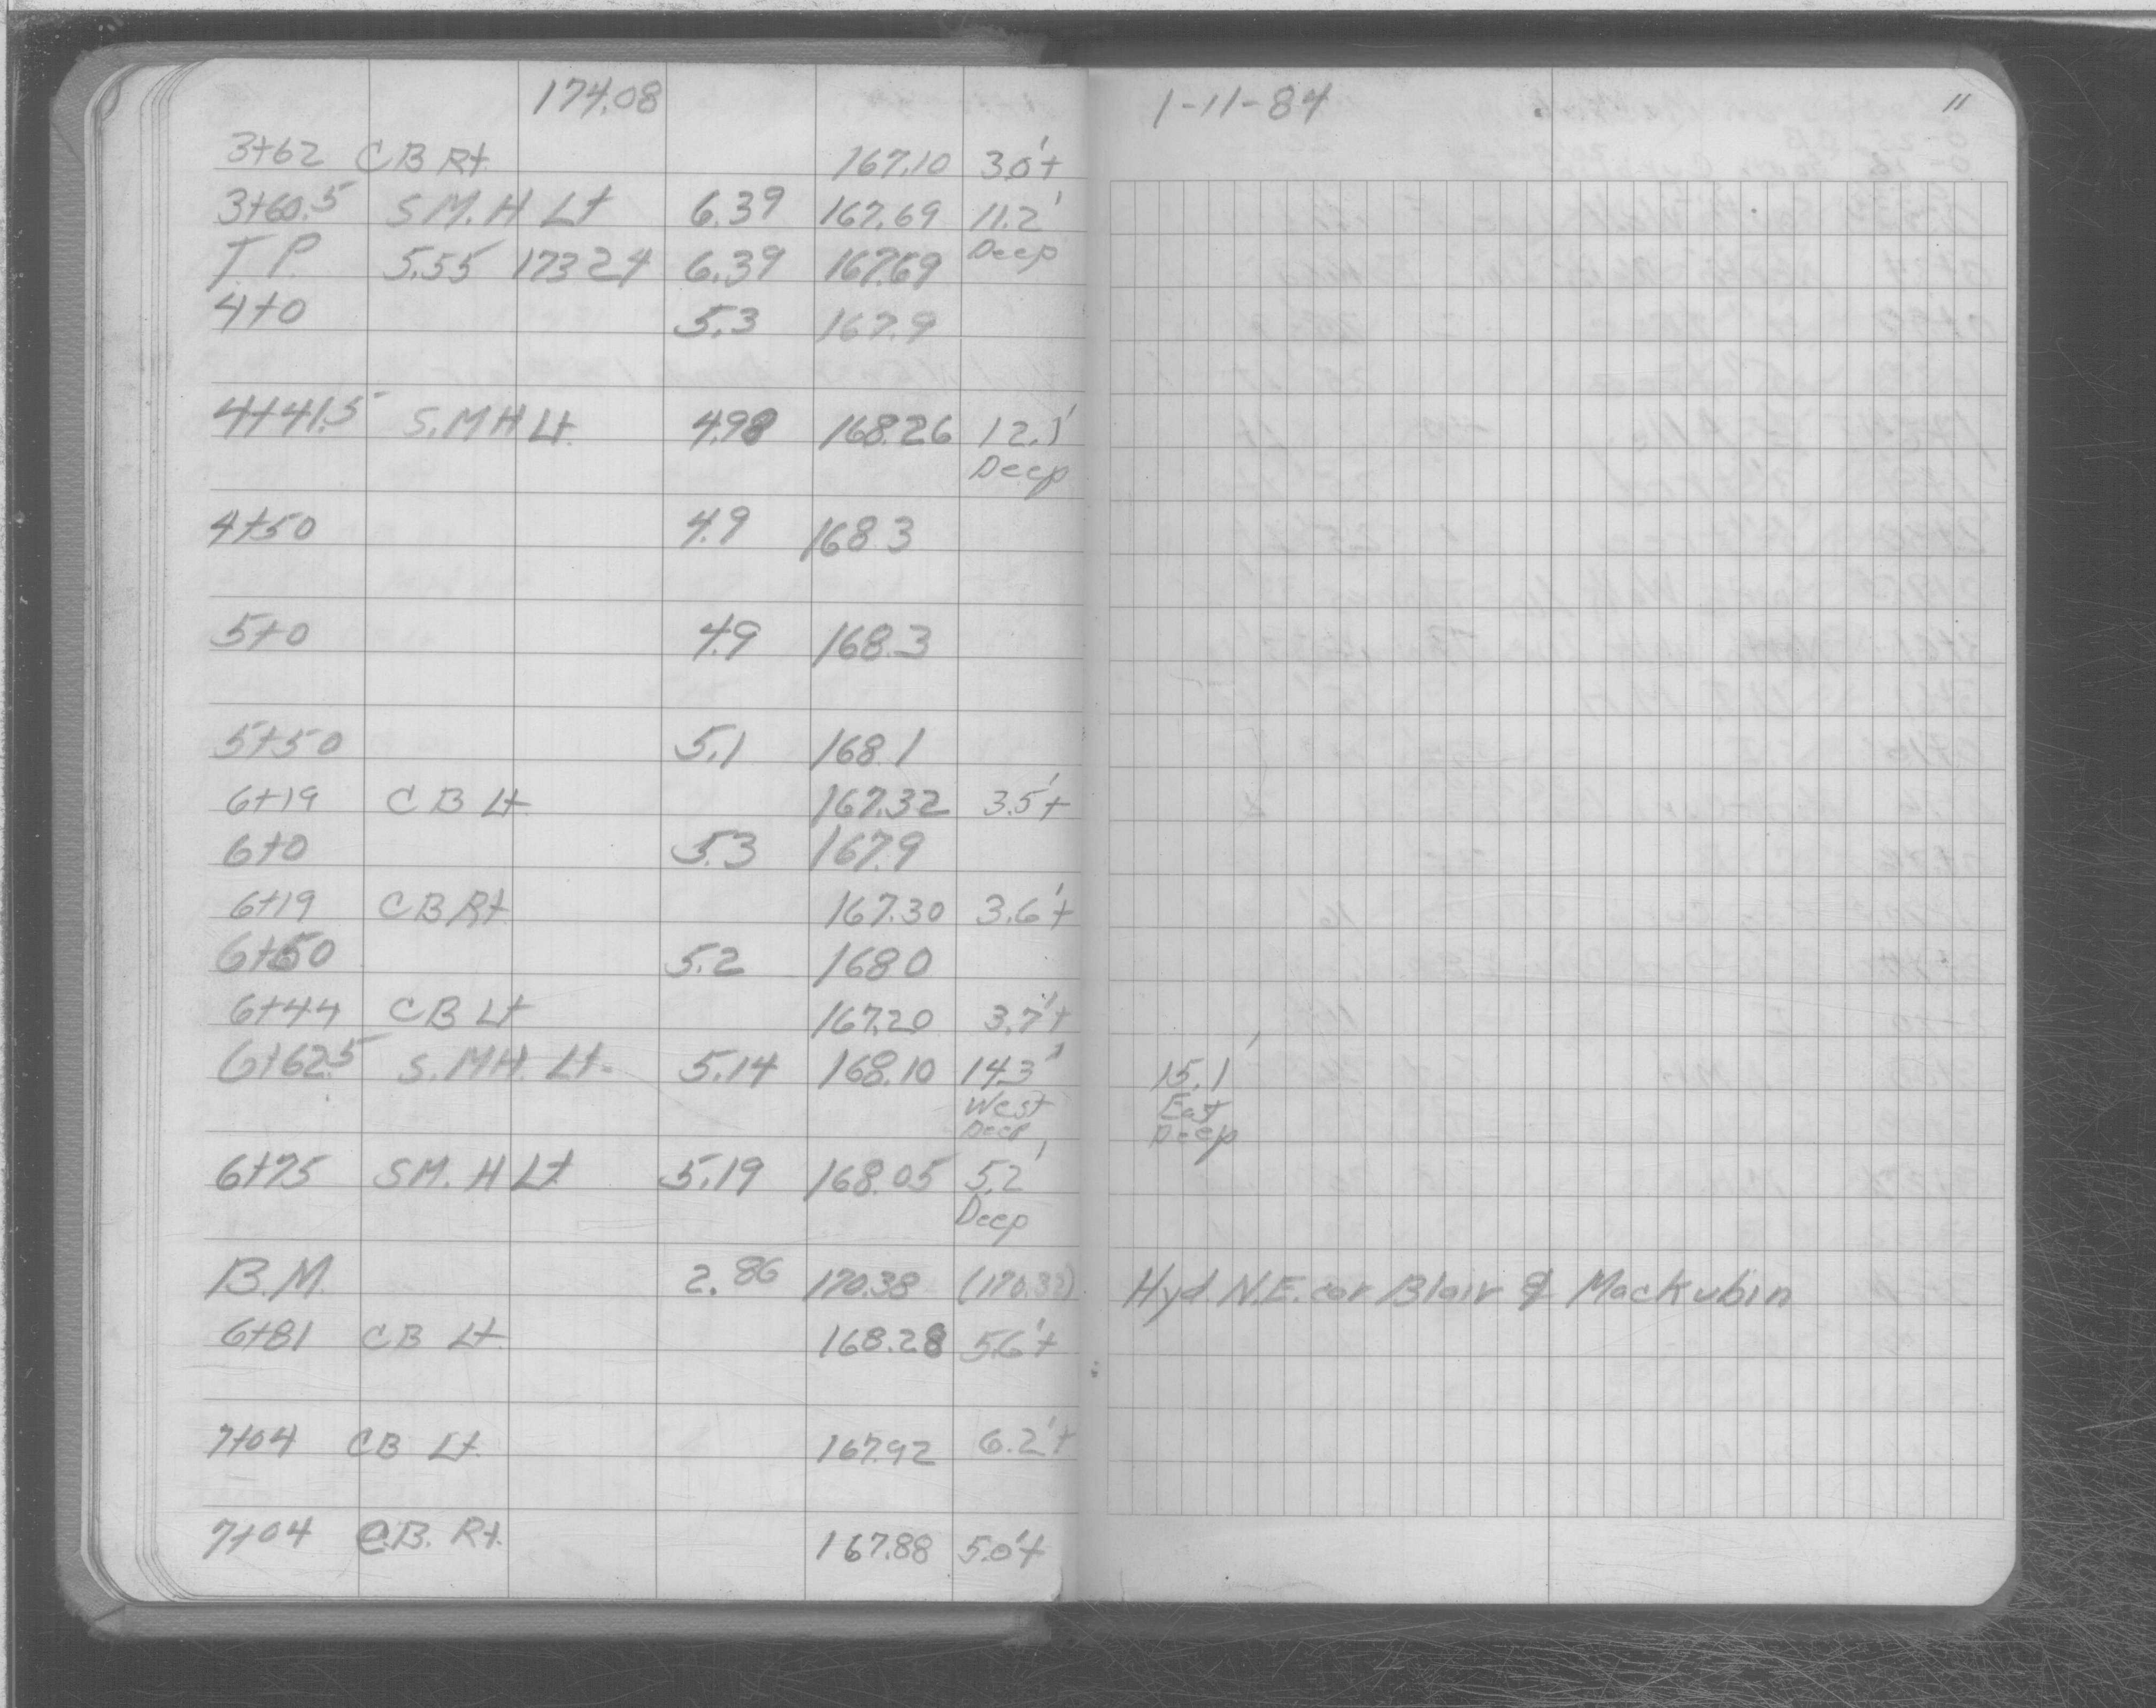 174.08 1-11-84 11
3+62 CB Rt. 167.10 3.0'+
3+60.5 S.M.H Lt 6.39 167.69 11.2'
Deep
T.P. 5.55 173.24 6.39 167.69
4+0 5.3 167.9
4+41.5 S.M H Lt. 4.98 168.26 12.1'
Deep
4+50 4.9 168.3
5+0 4.9 168.3
5+50 5.1 168.1
6+19 CB Lt. 167.32 3.5'+
6+0 5.3 167.9
6+19 CB Rt 167.30 3.6'+
6+50 5.2 168.0
6+44 CB Lt 167.20 3.7'+
6+62.5 S.MH. Lt. 5.14 168.10 14.3' 15.1'
West East
Deep Deep
6+75 SM. H Lt 5.19 168.05 5.2'
Deep
B.M. 2.86 170.38 Hyd N.E. cor Blair & Mackubin
6+81 CB Lt. 168.28 5.6'+
7+04 CB Lt. 167.92 6.2'+
7+04 C.B. Rt. 167.88 5.0'+